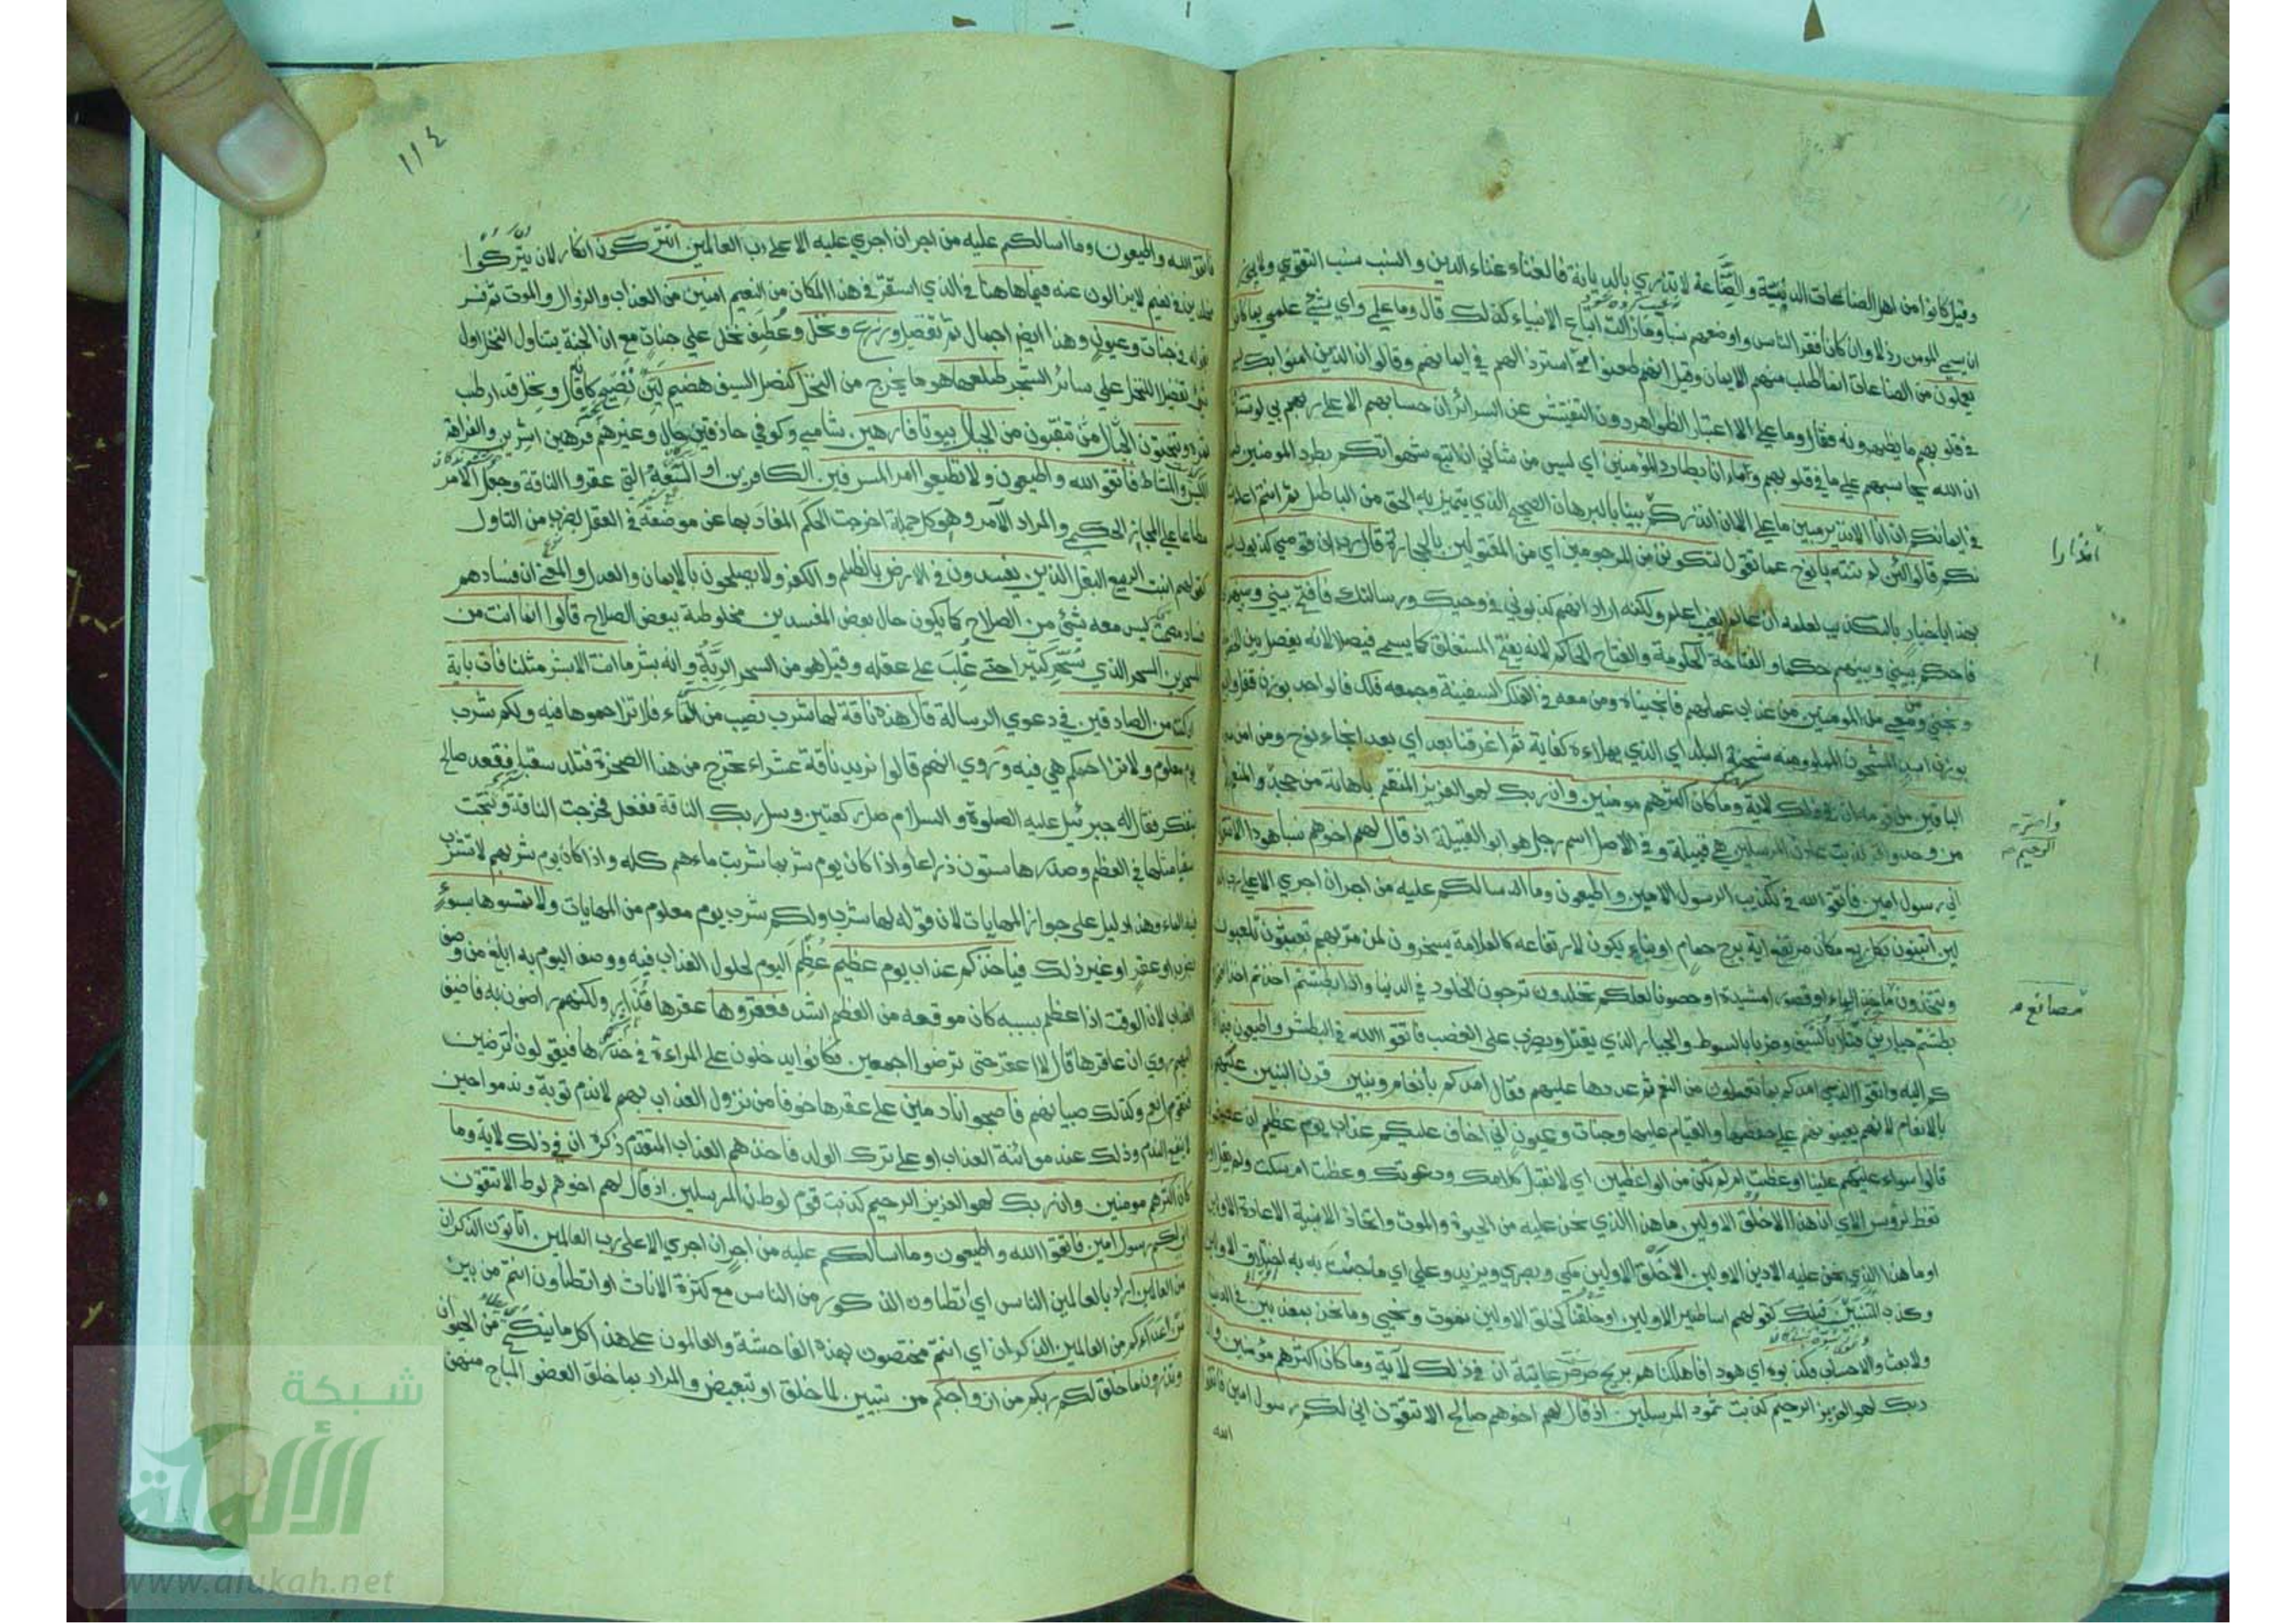 وقيل كانوا من اهل الصناعات الدنيئة والصِّناعة لا تزري بالديانة فالغناء غناء الدين والنسب نسب التقوي ولا يجوز
ان يسمي المومن رذلا وان كان أفقر الناس واوضعهم نسبا وما زالت اتباع الانبياء كذلك قال وما علمي واي شيء علمي بما كانوا
يعملون من الصناعات انما اطلب منهم الايمان وقيل انهم طعنوا مع استرذالهم في ايمانهم وقالوا ان الذين امنوا بك ليس
في قلوبهم ما يظهرونه فقال وما علي الا اعتبار الظواهر دون التفتيش عن السرائر ان حسابهم الا علي ربي لو تشعرون
ان الله يحاسبهم علي ما في قلوبهم وما انا بطارد المؤمنين اي ليس من شاني ان اتبع شهواتكم بطرد المومنين طمعا
في ايمانكم ان انا الا نذير مبين ما علي الا ان انذركم بينا بالبرهان الصحيح الذي يتميز به الحق من الباطل ثم انتم اعلم بشا
نكم قالوا لئن لم تنته يا نوح عما تقول لتكونن من المرجومين اي من المقتولين بالحجارة قال رب ان قومي كذبون ليس
هذا اخبار بالتكذيب لعلمه ان عالم الغيب اعلم ولكنه اراد انهم كذبوني في وحيك ورسالتك فافتح بيني وبينهم
فاحكم بيني وبينهم حكما والفتاحة الحكومة والفتاح الحاكم لانه يفتح المستغلق كما يسمي فيصلا لانه يفصل بين
ونجني ومن معي من المومنين من عذاب عملهم فانجيناه ومن معه في الفلك السفينة وجمعه فلك فالواحد بوزن قفل والجمع
بوزن اسد المشحون المملو ومنه شحنة البلد اي الذي يملاءه كفاية ثم اغرقنا بعد اي بعد انجاء نوح ومن امن
الباقين من قومه ان في ذلك لاية وما كان اكثرهم مومنين وان ربك لهو العزيز المنتقم باهانة من جحد
من وحد واقر كذبت عاد ن المرسلين هي قبيلة وفي الاصل اسم رجل هو ابو القبيلة اذ قال لهم اخوهم نسبا هود الا تتقون
اني رسول امين فاتقو الله في تكذيب الرسول الامين واطيعون وما اسالكم عليه من اجر ان اجري الا علي رب العا
لمين اتبنون بكل ريع مكان مرتفع اية برج حمام او بناء يكون لارتفاعه كالعلامة يسخرون لمن مر بهم تعبثون تلعبون
وتتخذون ماخذ الماء او قصورا مشيدة او حصونا لعلكم تخلدون ترجون الخلود في الدنيا واذا بطشتم اخذتم
بطشتم جبارين قتلا بالسيف وضربا بالسوط والجبار الذي يقتل ويضرب على الغضب فاتقو الله في البطش واطيعون فيما ادعو
كم اليه واتقوا الذي امدكم بما تعلمون من النعم ثم عددها عليهم فقال امدكم بأنعام وبنين قرن البنين
بالانعام لانهم يعينونهم علي حفظها والقيام عليها وجنات وعيون اني اخاف عليكم عذاب يوم عظيم ان عصيتموني
قالوا سواء علينا اوعظت ام لم تكن من الواعظين اي لا نقبل كلامك ودعوتك وعظت ام سكت ولم يقل
تعظ لرؤس الاي ان هذا الا خلق الاولين ما هذا الذي نحن عليه من الحيوة والموت واتخاذ الابنية الا عادة الاولين
او ما هذا الذي نحن عليه الا دين الاولين الا خلق الاولين مكي وبصري ويزيد وعلي اي ما جئت به اختلاق الاولين
وكذب المتنبين قبلك كقولهم اساطير الاولين او خلقنا كخلق الاولين نموت ونحيي وما نحن بمعذبين في الدنيا
ولا بعث ولا حساب فكذبوه اي هود افاهلكناهم بريح صرصر عاتية ان في ذلك لآية وما كان اكثرهم مؤمنين وان
ربك لهو العزيز الرحيم كذبت ثمود المرسلين اذ قال لهم اخوهم صالح الا تتقون اني لكم رسول امين فاتقوا
الله
انذارا
وانتقر
الرحيم
مصانع
١١٤
فاتقو الله واطيعون وما اسالكم عليه من اجر ان اجري عليه الا علي رب العالمين اتتركون انكار لان يتركوا
مخلدين في نعيم لا يزالون عنه فيما هاهنا في الذي استقر في هذا المكان من النعيم امنين من العذاب والزوال والموت ثم فسر
بقوله في جنات وعيون وهذا ايضا اجمال ثم تفصيل وزروع ونخل وعطف نخل علي جنات مع ان الجنة يتناول النخل اول
شي تفضيلا للنخل علي سائر الشجر طلعها هو ما يخرج من النخل كنصل السيف هضيم لين نضيج كانه قال ونخل قد ارطب
ثمره وتنحتون من الجبال تنقبون من الجبال بيوتا فارهين شامي وكوفي حاذقين حال وغيرهم فرهين اشرين والفراهة
الكيس والنشاط فاتقو الله واطيعون ولا تطيعوا امر المسرفين الكافرين او التسعة التي عقروا الناقة وجعل الامر
مطاعا علي المجاز الحكمي والمراد الآمر وهو كل جملة اخرجت الحكم المفاد بها عن موضعه في العقل لضرب من التاول
كقولهم انبت الربيع البقل الذين يفسدون في الارض بالظلم والكفر ولا يصلحون بالايمان والعدل والمعني ان فسادهم
فساد مصمت ليس معه شيئ من الصلاح كما يكون حال بعض المفسدين مخلوطة ببعض الصلاح قالوا انما انت من
المسحرين المسحر الذي سحر كثيرا حتي غلب علي عقله وقيل هو من السحر الرئة وانه بشر ما انت الا بشر مثلنا فات باية
ان كنت من الصادقين في دعوي الرسالة قال هذه ناقة لها شرب نصيب من الماء فلا تزاحموها فيه ولكم شرب
يوم معلوم ولا تزاحمكم هي فيه وروي انهم قالوا نريد ناقة عشراء تخرج من هذا الصخرة فتلد سقبا فقعد صالح
يتفكر فقال له جبرئيل عليه الصلوة والسلام صل ركعتين وسل ربك الناقة ففعل فخرجت الناقة ونتجت
سقبا مثلها في العظم وصدرها ستون ذراعا واذا كان يوم شربها شربت ماءهم كله واذا كان يوم شربهم لا تشرب
فيه الماء وهذا دليل على جواز المهايات لان قوله لها شرب ولكم شرب يوم معلوم من المهايات ولا تمسوها بسوء
بضرب او عقر او غير ذلك فياخذكم عذاب يوم عظيم عظم اليوم لحلول العذاب فيه ووصف اليوم به ابلغ من وصف
العذاب لان الوقت اذا عظم بسببه كان موقعه من العظم اشد فعقروها عقرها قدار ولكنهم راضون به فاضيف
اليهم روي ان عاقرها قال لا اعقر حتى ترضوا اجمعين فكانوا يدخلون علي المراءة في خدرها فيقولون اترضين
فتقول نعم وكذلك صبيانهم فاصبحوا نادمين علي عقرها خوفا من نزول العذاب بهم لا ندم توبة وندموا حين
لا ينفع الندم وذلك عند معاينة العذاب او علي ترك الولد فاخذهم العذاب المتقدم ذكره ان في ذلك لاية وما
كان اكثرهم مومنين وان ربك لهو العزيز الرحيم كذبت قوم لوط ن المرسلين اذ قال لهم اخوهم لوط الا تتقون
اني لكم رسول امين فاتقوا الله واطيعون وما اسالكم عليه من اجر ان اجري الا علي رب العالمين اتاتون الذكران
من العالمين اراد بالعالمين الناس اي أتطاون الذكور من الناس مع كثرة الاناث او اتطاون انتم من بين
من عداكم من العالمين الذكران اي انتم مختصون بهذه الفاحشة والعالمون علي هذا كل ما ينكح من الحيوان
وتذرون ما خلق لكم ربكم من ازواجكم من تبيين لما خلق او تبعيض والمراد بما خلق العضو المباح منهن
شبكة
الألوكة
www.alukah.net